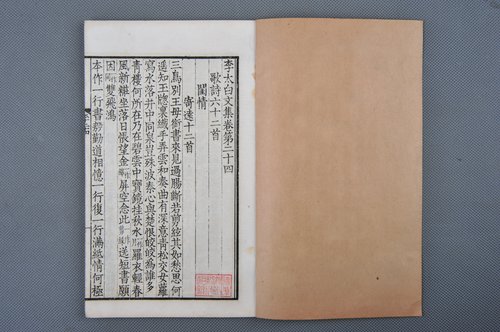 李太白文集卷第二十四
歌詩六十二首
閨情
寄遠十二首
三鳥別王母銜書來見過腸斷若剪絃其如愁思何
遥知玉牎裏纖手弄雲和奏曲有深意青松交女蘿
寫水落井中同泉豈殊波秦心與楚恨皎皎為誰多
青樓何所在乃在碧雲中寶鏡挂秋水羅衣輕春
風新粧坐落日悵望金屏空念此送短書願
因雙飛鴻
本作一行書殷勤道相憶一行復一行滿紙情何極